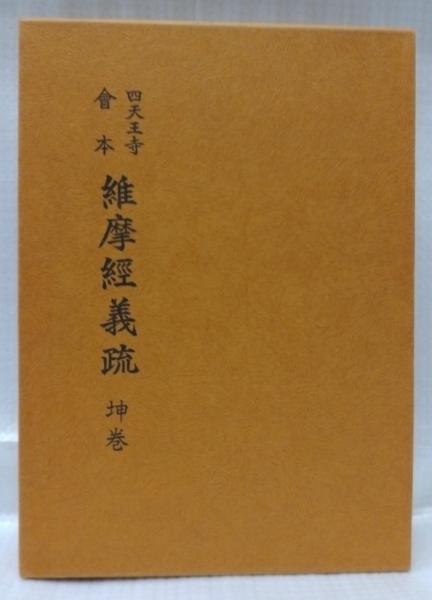 四天王寺
會本
維摩經義疏
坤巻